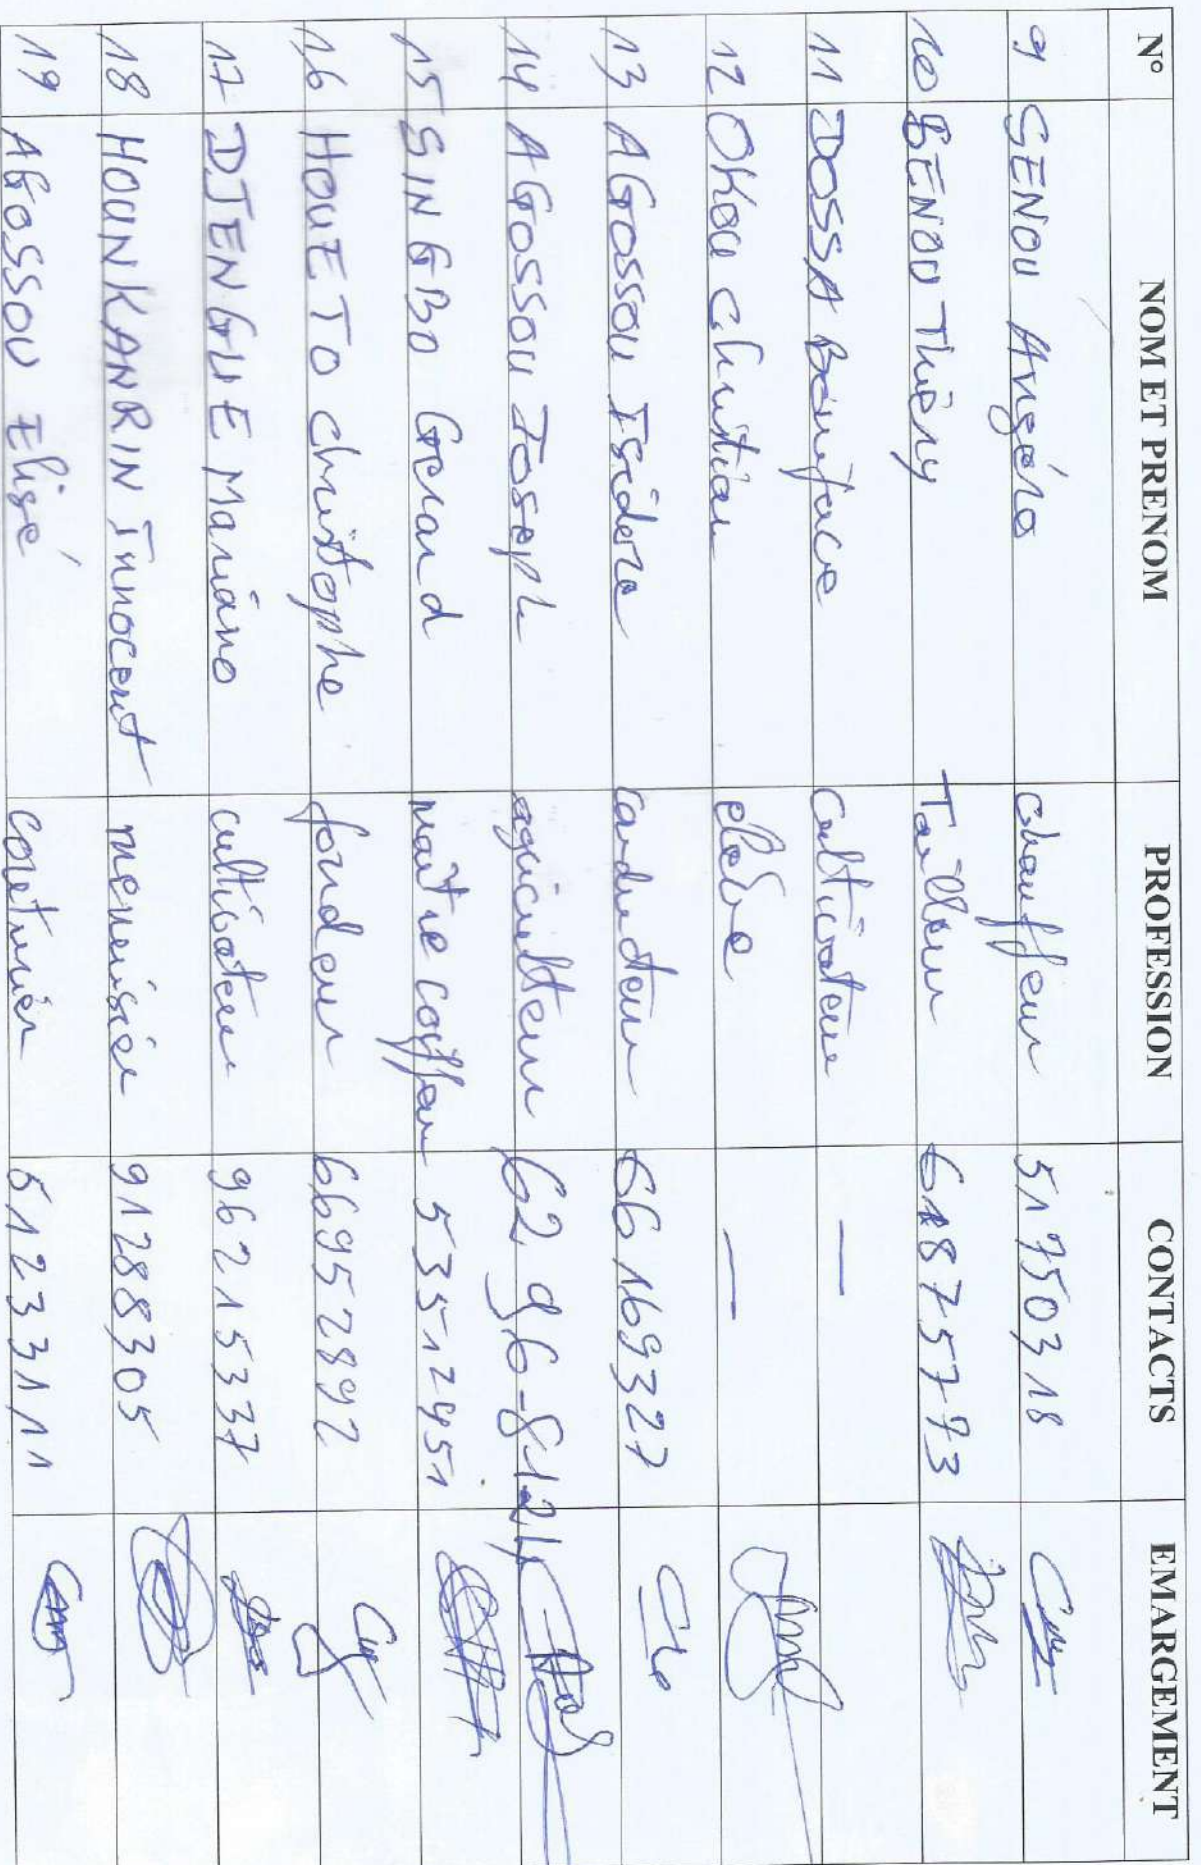 N° NOM ET PRENOM PROFESSION CONTACTS EMARGEMENT
9 SENOU Angélo chauffeur 51750318
10 SENOU Thièry Tailleur 61875773
11 DOSSA Boniface Cultivateur —
12 OKOU Christian elève —
13 AGOSSOU Isidore conducteur 66169327
14 AGOSSOU Joseph agriculteur 62.96-81-24
15 SINGBO Gerard maître coiffeur 53512451
16 HOUETO christophe fondeur 66952892
17 DJENGUE Mariano cultivateur 96215337
18 HOUNKANRIN Innocent menuisier 91288305
19 AGOSSOU Elisé couturier 51233111